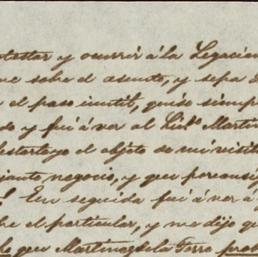 ntestar y ocurrir á la Legacion
me sobre el asunto, y sepa
el paso inutil, quiso siempre
so y fuí á ver al Licdo. Martin
festarle yo el objeto de mi visita
iento negocio, y que por consig
En seguida fuí á ver á
bre el particular, y me dijo qu
lo que Martinez de la Torre